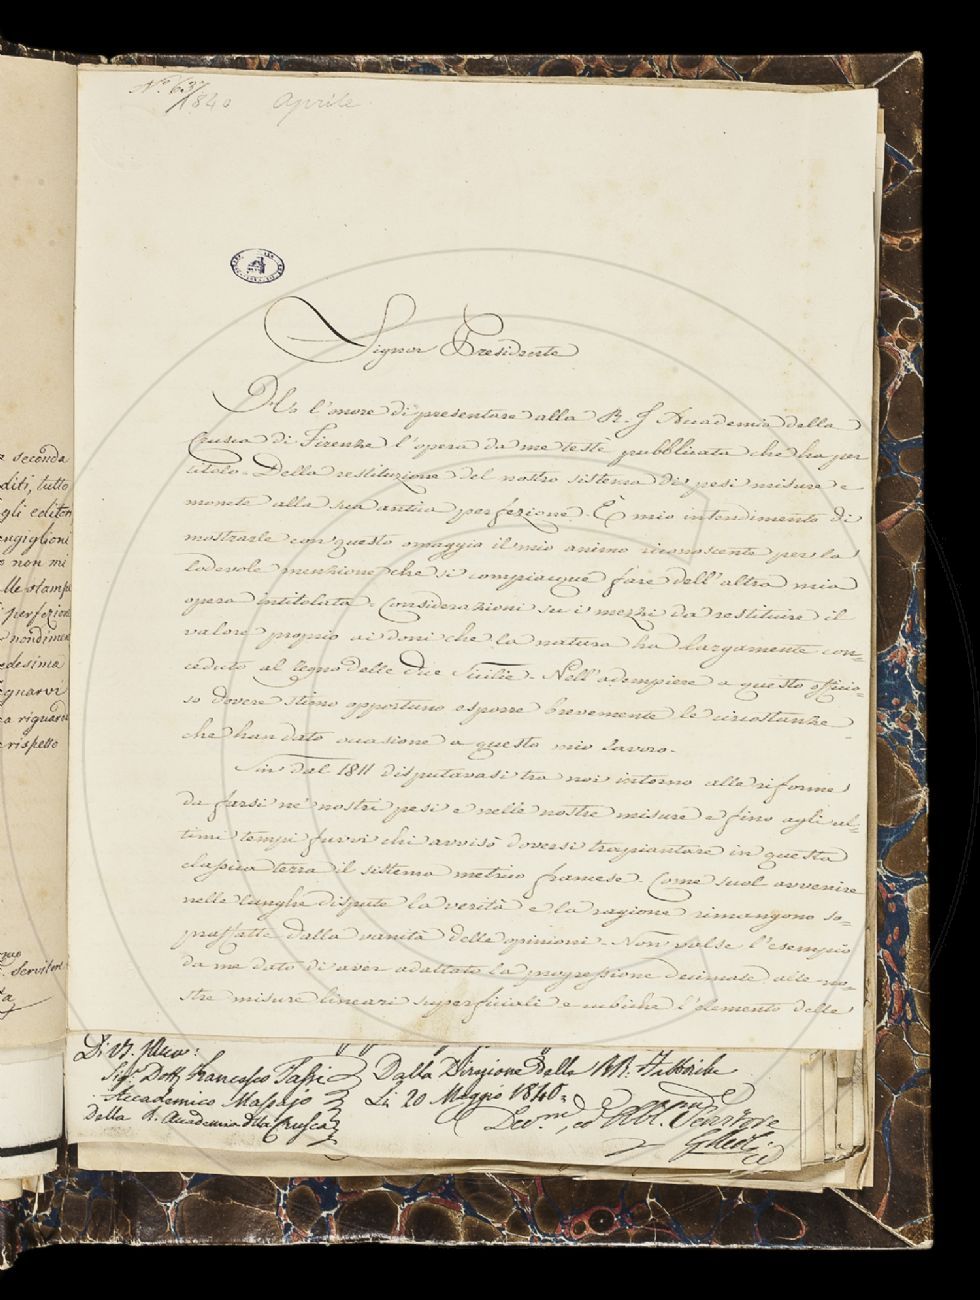 seconda
diti, tutto
gli editori
engiglioni
o non mi
lle stampe
perfezion
nondimen
edesima
gnarvi
a riguard
rispetto
Servitore
N.º 637
1840 Aprile
Signor Presidente
Ho l'onore di presentare alla R. I. Accademia della
Crusca di Firenze l'opera da me testè pubblicata che ha per
titolo = Della restituzione del nostro sistema di pesi misure e
monete alla sua antica perfezione. È mio intendimento di
mostrarle con questo omaggio il mio animo riconoscente per la
lodevole menzione che si compiacque fare dell'altra mia
opera intitolata = Considerazioni su i mezzi da restituire il
valore proprio ai doni che la natura ha largamente con=
ceduto al Regno delle Due Sicilie = Nell'adempiere a questo officio=
so dovere stimo opportuno esporre brevemente le circostanze
che han dato occasione a questo mio lavoro.
Sin dal 1811 disputavasi tra noi intorno alle riforme
da farsi ne' nostri pesi e nelle nostre misure e fino agli ul=
timi tempi furvi chi avvisò doversi trapiantare in questa
classica terra il sistema metrico francese. Come suol avvenire
nelle lunghe dispute la verità e la ragione rimangono so=
praffatte dalla vanità delle opinioni. Non valse l'esempio
da me dato di aver adattato la progressione decimale alle no=
stre misure lineari superficiali e cubiche l'elemento delle
Di VS. Illma:
Sigr Dottr Francesco Tassi
Accademico Massajo
Della R. Accademia dlla Crusca
Dalla Direzione Della RR. Fabbriche
Li 20 Maggio 1840.
Dev.mo, ed Obb. Servitore